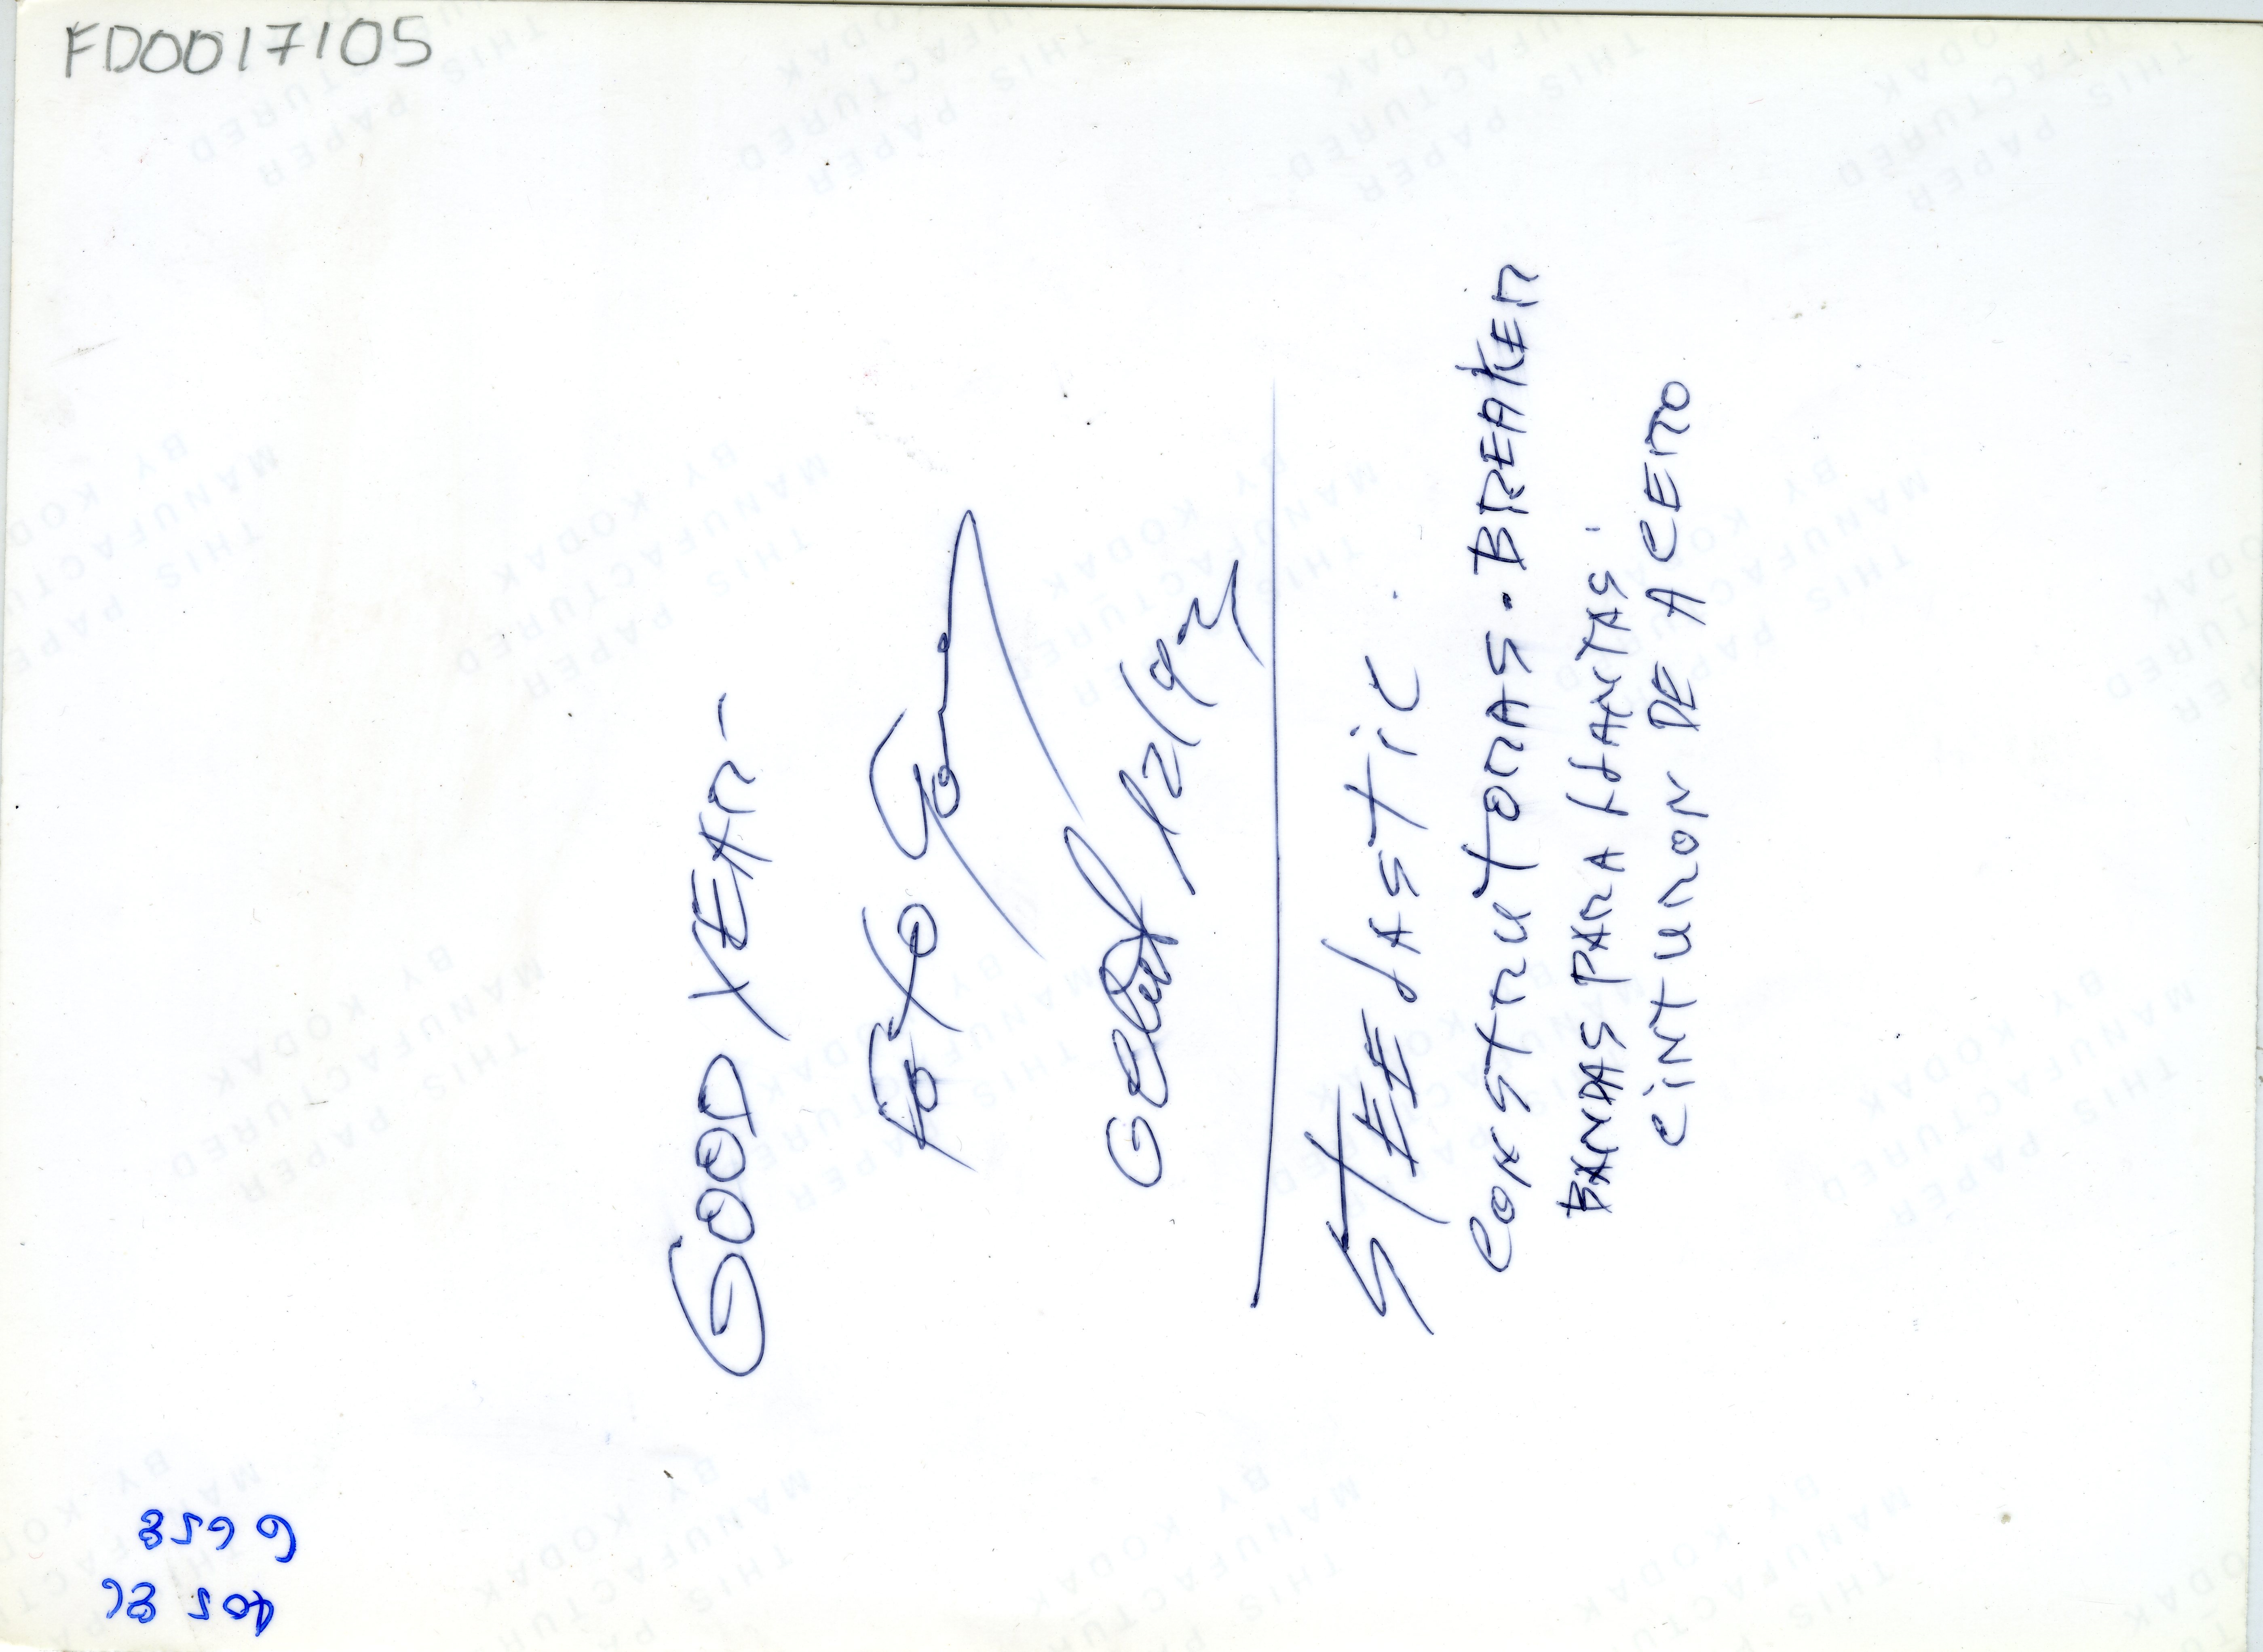 FD0017105
GOOD YEAR-
Foto
12/92
STEElAStic
CONSTRUTORAS. BREAKER
BANDAS PARA llANTAS
CiNTURON DE ACERO
THIS PAPER
MANUFACTURED
BY KODAK